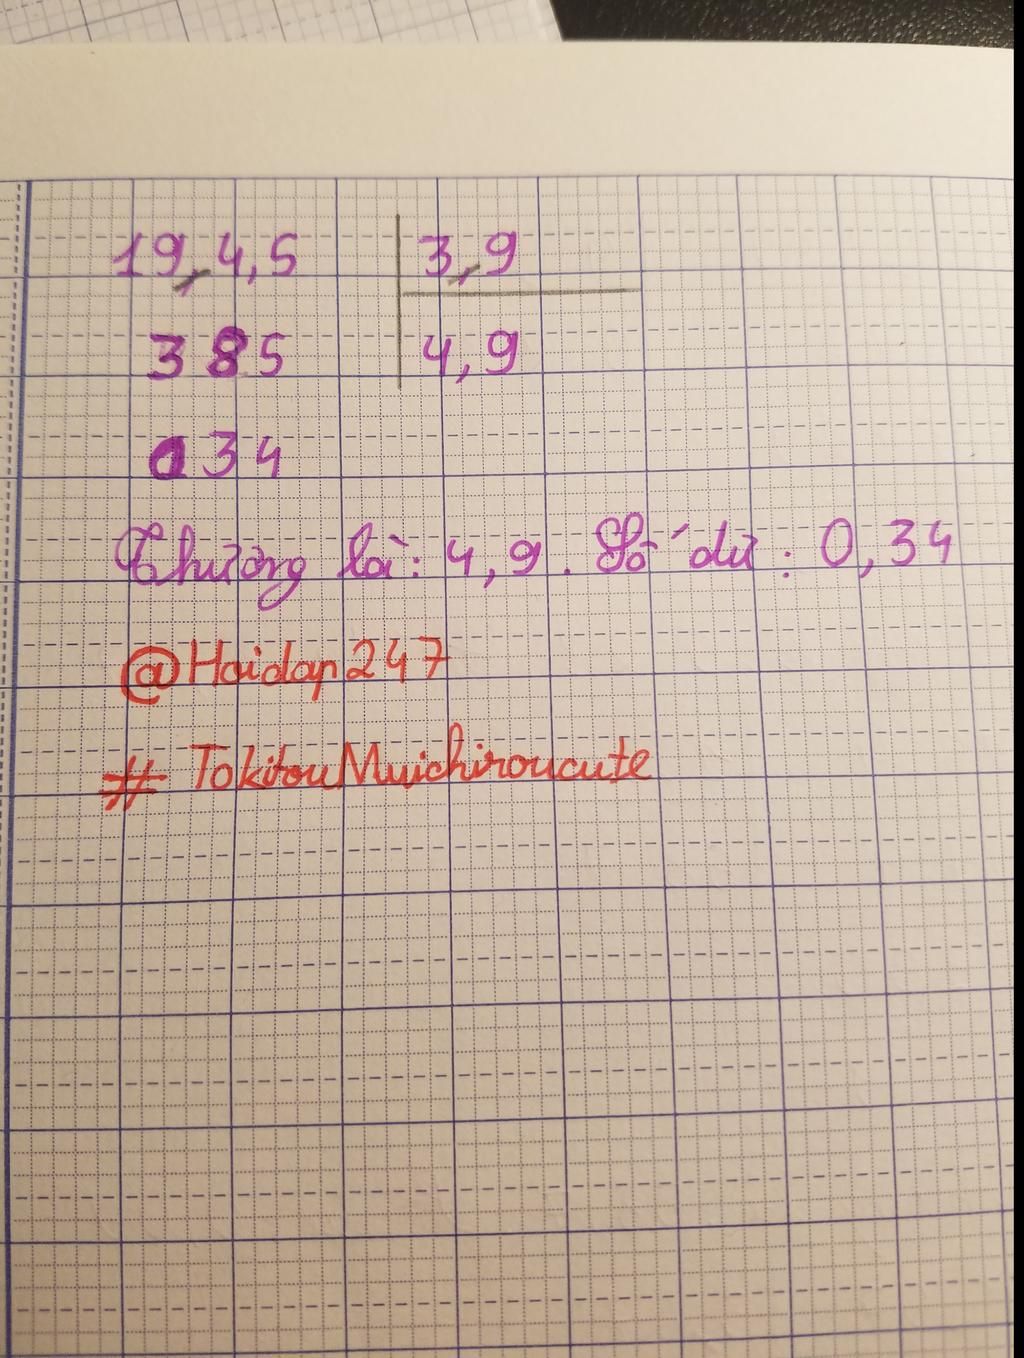 19,4,5 3,9
385 4,9
034
Thương là: 4,9. Số dư: 0,34
@Hoidap247
# TokitouMuichiroucute